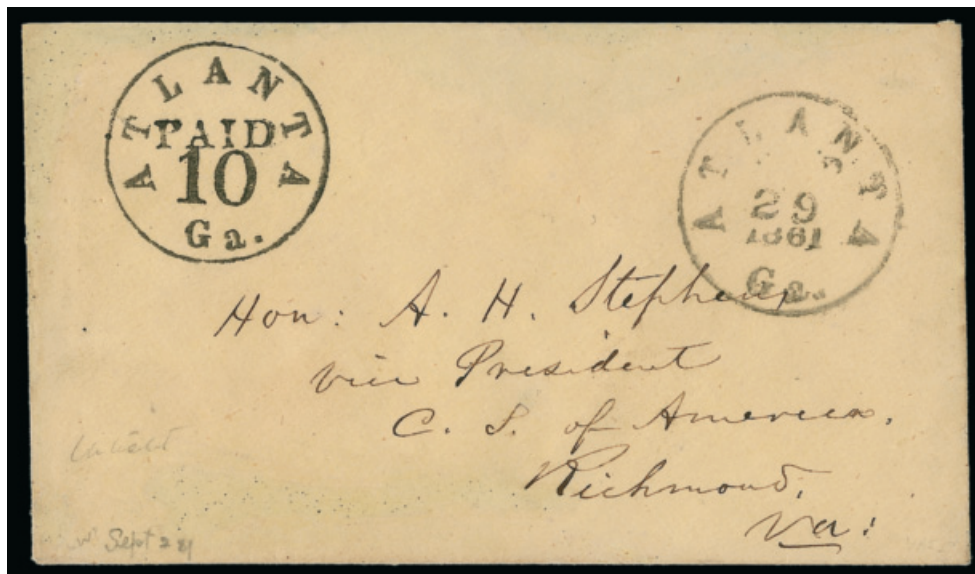 ATLANTA
PAID
10
Ga.
ATLANTA
29
1861
Ga.
Hon: A. H. Stephens
vice President
C. S. of America.
Richmond,
Va:
Sept